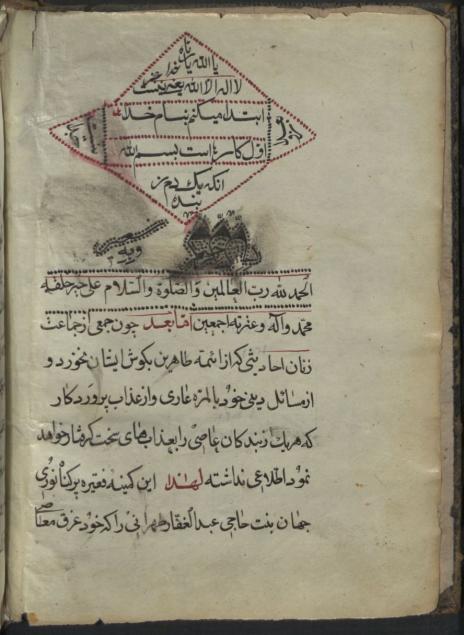 یا الله یا الله
لا اله الا الله یعنی نیست خدا
ابتدا میکنم بنام خدا
اول کار است بسم الله
آنکه یک دم ز
بنده
الحمد لله رب العالمین والصلوة والسلام علی خیر خلقه
محمد وآله وعترته اجمعین اما بعد چون جمعی از جماعت
زنان احادیثی که از ائمه طاهرین بکوش ایشان نخورد و
از مسائل دینی خود بالمره عاری و از عذاب پروردکار
که هر یک از بندکان عاصی را بعذابهای سخت کرفتار خواهد
نمود اطلاعی نداشته لهذا این کمینه فقیره پرکناه نوری
جهان بنت حاجی عبدالغفار طهرانی را که خود غرق معاصی